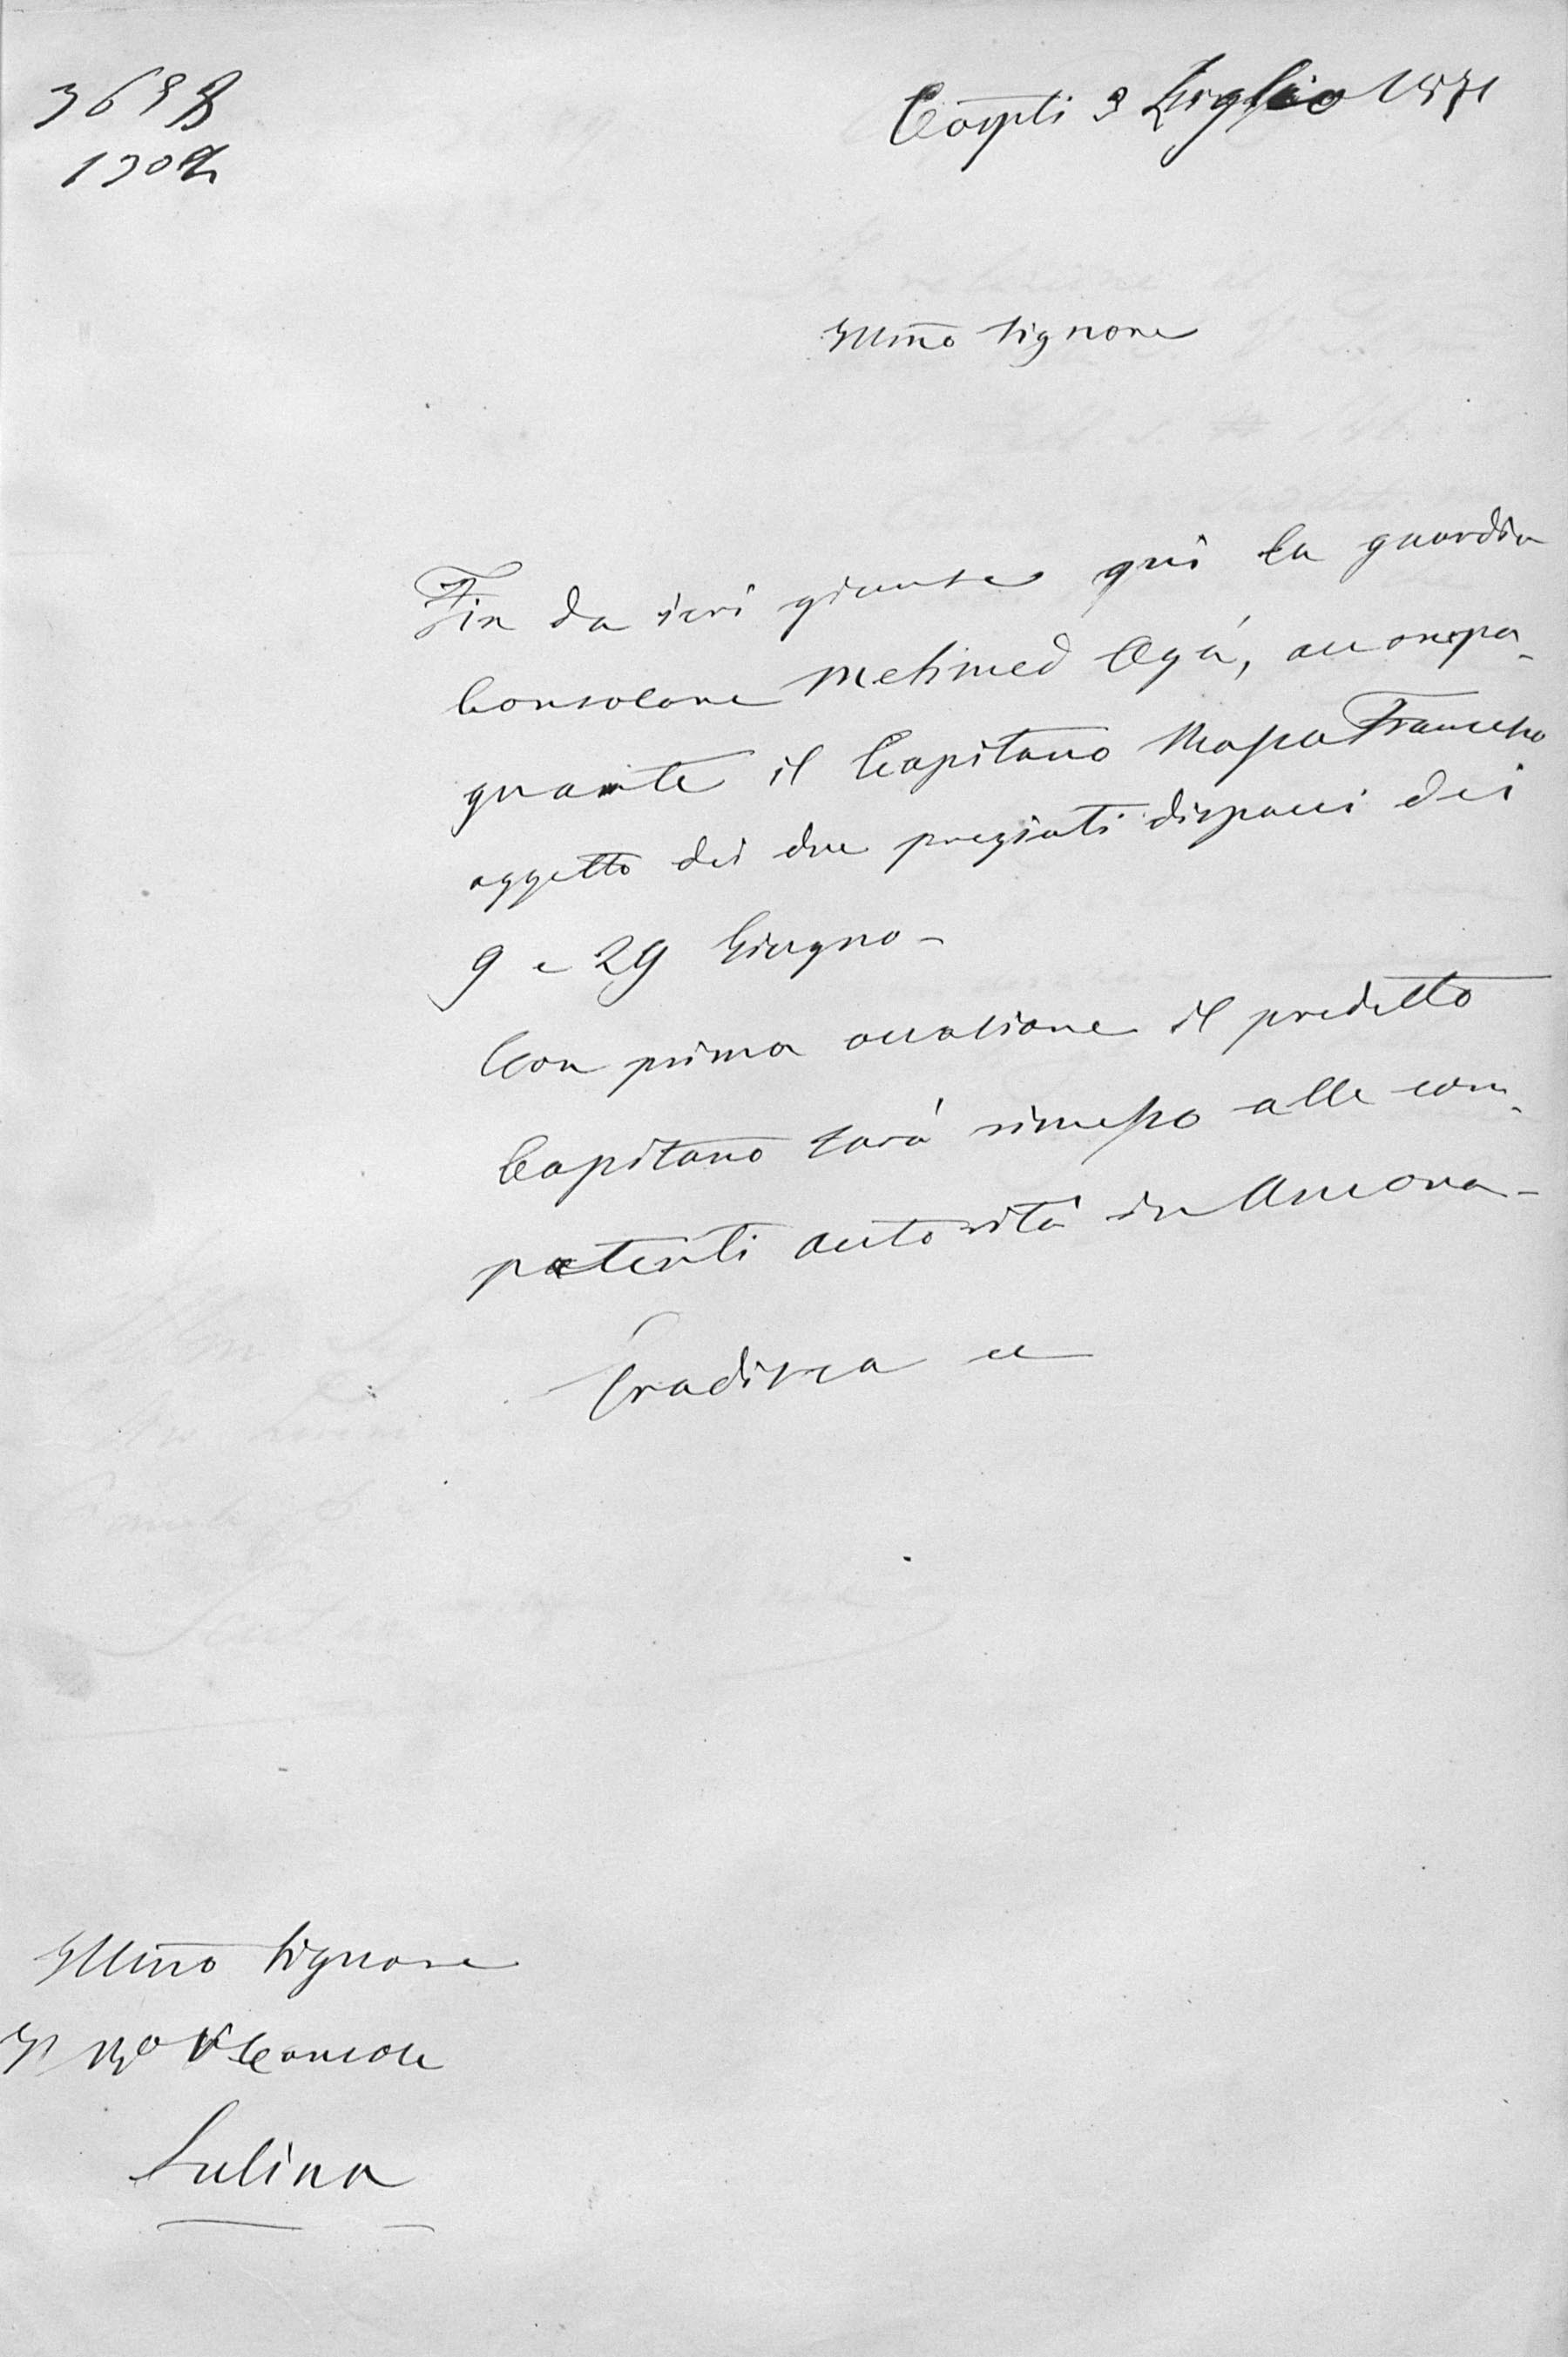 1302
Cospli 3 Luglio 1871
Illmo Signore
Fin da ieri giunse quì la guardia
Consolare Mehmed Agà, accompa-
gnante il Capitano Massa Francesco
oggetto dei due pregiati dispacci dei
9 e 29 Giugno -
Con prima occasione il predetto
Capitano sarà rimesso alle com-
petenti autorità in Ancona -
Gradisca ec
Illmo Signore
Il Ro V Console
Sulina